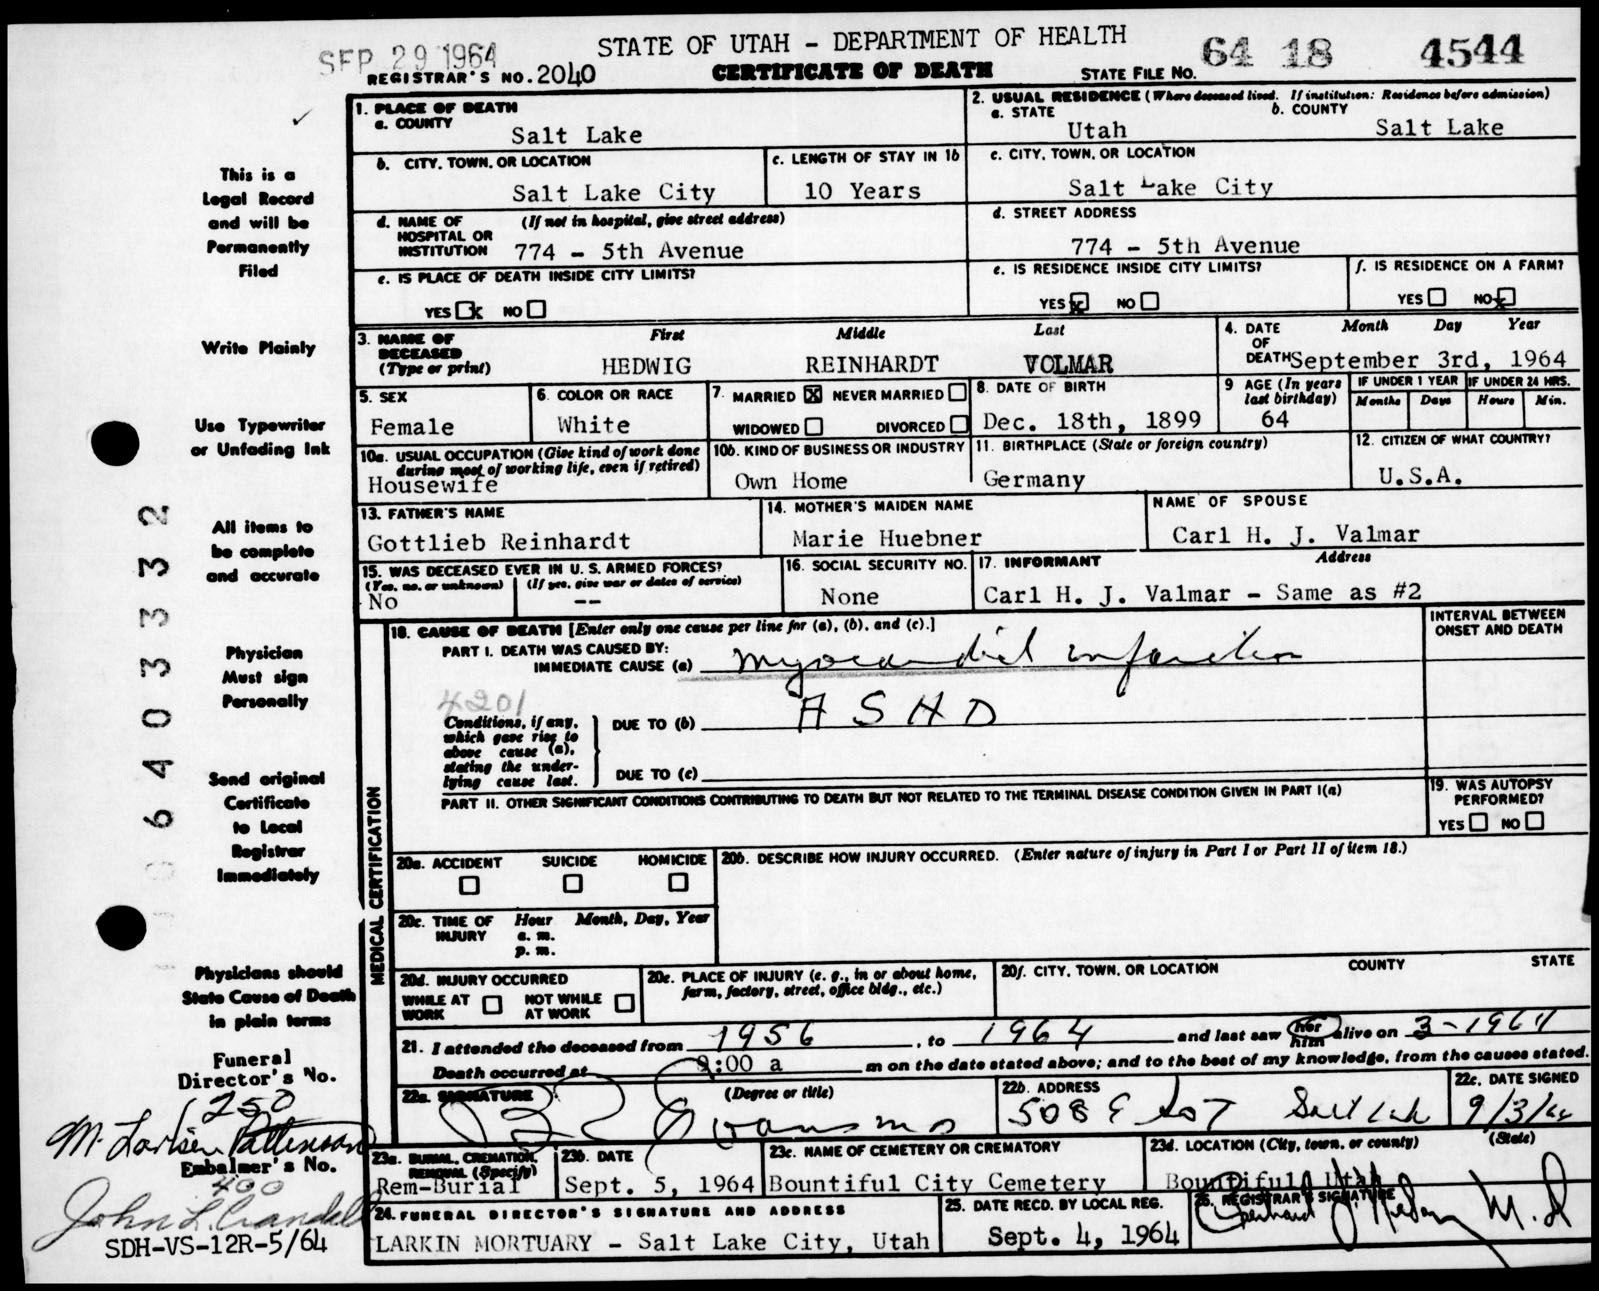 SEP 29 1964
STATE OF UTAH - DEPARTMENT OF HEALTH
64 18 4544
REGISTRAR'S NO. 2040
CERTIFICATE OF DEATH
STATE FILE NO.
1. PLACE OF DEATH
a. COUNTY
Salt Lake
2. USUAL RESIDENCE (Where deceased lived. If institution: Residence before admission)
a. STATE
Utah
b. COUNTY
Salt Lake
b. CITY, TOWN, OR LOCATION
Salt Lake City
c. LENGTH OF STAY IN 1b
10 Years
c. CITY, TOWN, OR LOCATION
Salt Lake City
d. NAME OF HOSPITAL OR INSTITUTION
(If not in hospital, give street address)
774 - 5th Avenue
d. STREET ADDRESS
774 - 5th Avenue
e. IS PLACE OF DEATH INSIDE CITY LIMITS?
YES x NO
e. IS RESIDENCE INSIDE CITY LIMITS?
YES x NO
f. IS RESIDENCE ON A FARM?
YES NO x
3. NAME OF DECEASED (Type or print)
First Middle Last
HEDWIG REINHARDT VOLMAR
4. DATE OF DEATH
Month Day Year
September 3rd, 1964
5. SEX
Female
6. COLOR OR RACE
White
7. MARRIED X NEVER MARRIED
WIDOWED DIVORCED
8. DATE OF BIRTH
Dec. 18th, 1899
9 AGE (In years last birthday)
64
IF UNDER 1 YEAR
Months Days
IF UNDER 24 HRS.
Hours Min.
10a. USUAL OCCUPATION (Give kind of work done during most of working life, even if retired)
Housewife
10b. KIND OF BUSINESS OR INDUSTRY
Own Home
11. BIRTHPLACE (State or foreign country)
Germany
12. CITIZEN OF WHAT COUNTRY?
U.S.A.
13. FATHER'S NAME
Gottlieb Reinhardt
14. MOTHER'S MAIDEN NAME
Marie Huebner
NAME OF SPOUSE
Carl H. J. Valmar
15. WAS DECEASED EVER IN U. S. ARMED FORCES?
(Yes, no, or unknown) (If yes, give war or dates of service)
No --
16. SOCIAL SECURITY NO.
None
17. INFORMANT Address
Carl H. J. Valmar - Same as #2
MEDICAL CERTIFICATION
18. CAUSE OF DEATH [Enter only one cause per line for (a), (b), and (c).]
INTERVAL BETWEEN ONSET AND DEATH
PART I. DEATH WAS CAUSED BY:
IMMEDIATE CAUSE (a) myocardial infarction
4201
Conditions, if any, which gave rise to above cause (a), stating the underlying cause last.
DUE TO (b) ASHD
DUE TO (c)
PART II. OTHER SIGNIFICANT CONDITIONS CONTRIBUTING TO DEATH BUT NOT RELATED TO THE TERMINAL DISEASE CONDITION GIVEN IN PART I(a)
19. WAS AUTOPSY PERFORMED?
YES NO
20a. ACCIDENT SUICIDE HOMICIDE
20b. DESCRIBE HOW INJURY OCCURRED. (Enter nature of injury in Part I or Part II of item 18.)
20c. TIME OF INJURY
Hour Month, Day, Year
a. m.
p. m.
20d. INJURY OCCURRED
WHILE AT WORK NOT WHILE AT WORK
20e. PLACE OF INJURY (e. g., in or about home, farm, factory, street, office bldg., etc.)
20f. CITY, TOWN, OR LOCATION COUNTY STATE
21. I attended the deceased from 1956, to 1964 and last saw her him alive on 3-1964
Death occurred at :00 a m on the date stated above; and to the best of my knowledge, from the causes stated.
22a. SIGNATURE (Degree or title)
Evans MD
22b. ADDRESS
508 E
22c. DATE SIGNED
9/3/64
23a. BURIAL, CREMATION, REMOVAL (Specify)
Rem-Burial
23b. DATE
Sept. 5, 1964
23c. NAME OF CEMETERY OR CREMATORY
Bountiful City Cemetery
23d. LOCATION (City, town, or county) (State)
Bountiful Utah
24. FUNERAL DIRECTOR'S SIGNATURE AND ADDRESS
LARKIN MORTUARY - Salt Lake City, Utah
25. DATE RECD. BY LOCAL REG.
Sept. 4, 1964
26. REGISTRAR'S SIGNATURE
M.D
This is a
Legal Record
and will be
Permanently
Filed
Write Plainly
Use Typewriter
or Unfading Ink
All items to
be complete
and accurate
Physician
Must sign
Personally
Send original
Certificate
to Local
Registrar
Immediately
Physicians should
State Cause of Death
in plain terms
Funeral
Director's No.
1250
Embalmer's No.
400
John L. Crandall
SDH-VS-12R-5/64
6403332